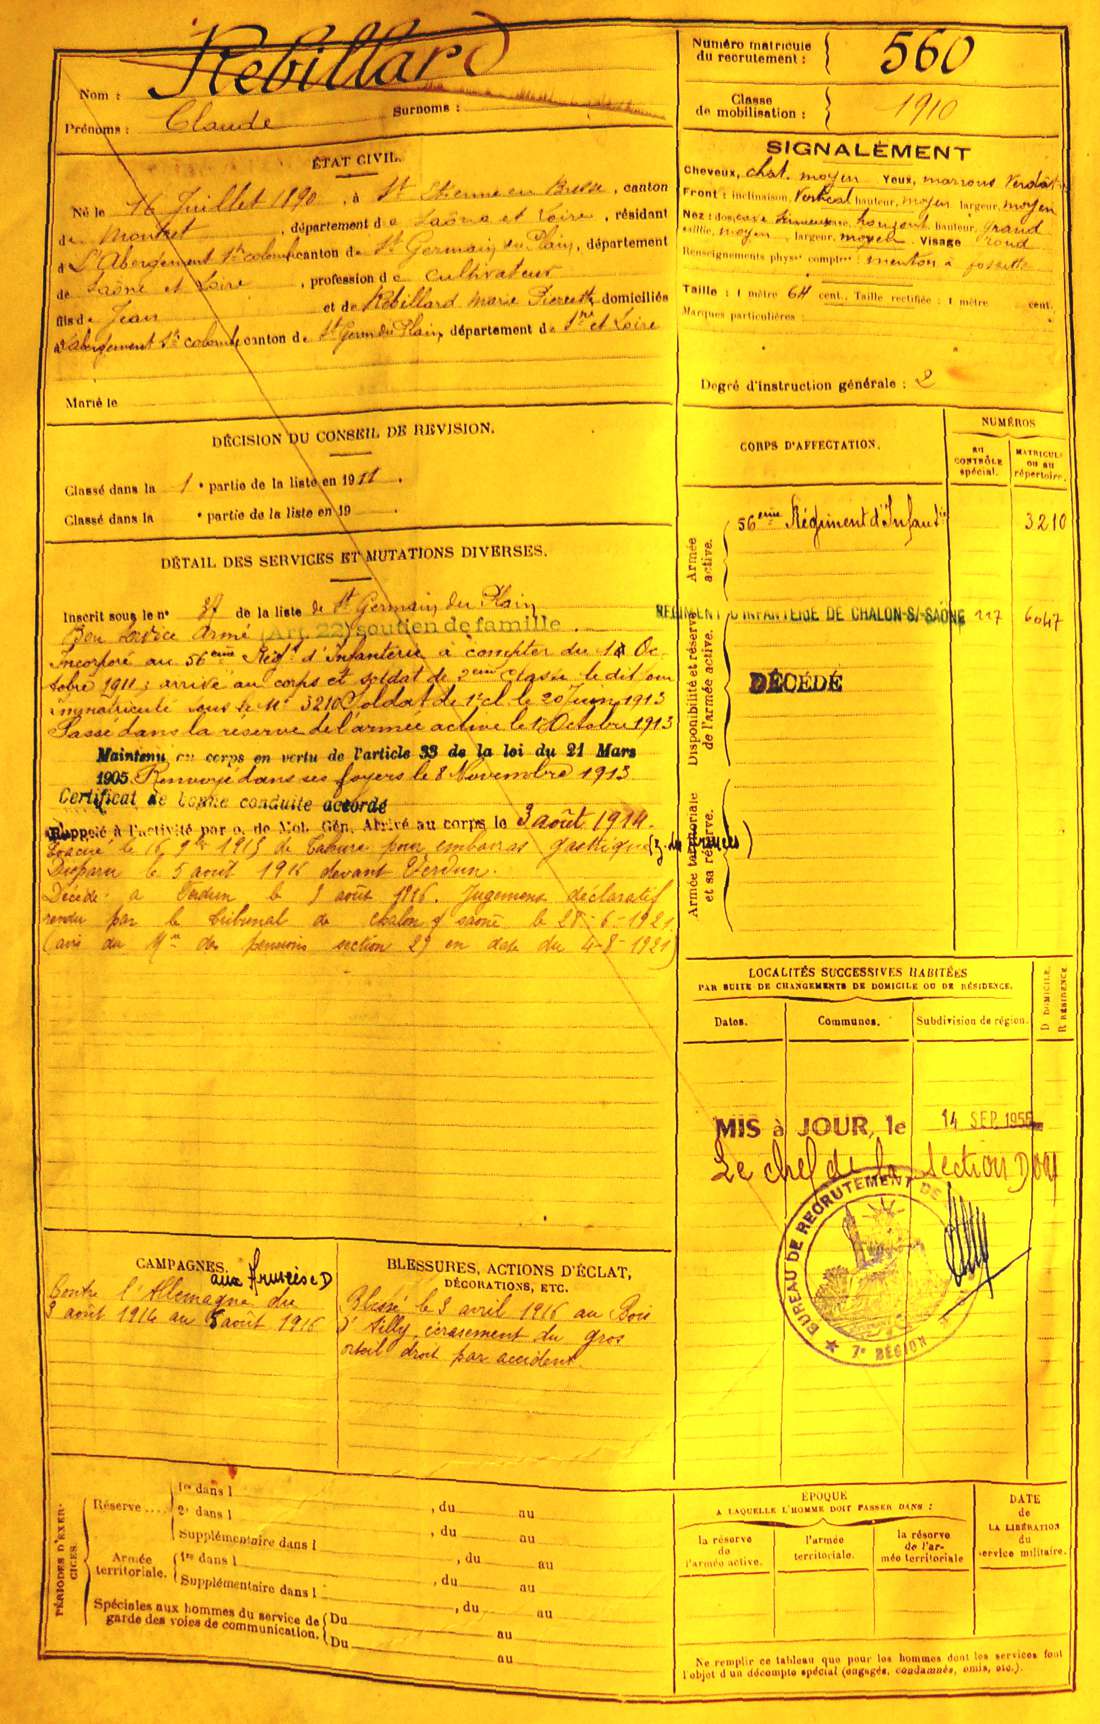 Nom : Rebillard
Surnoms :
Prénoms : Claude
Numéro matricule
du recrutement : 560
Classe
de mobilisation : 1910
ÉTAT CIVIL.
Né le 16 Juillet 1890, à St Etienne en Bresse, canton
de Montret, département de Saône et Loire, résidant
à L'Abergement Ste colombe canton de St Germain du Plain, département
de Saône et Loire, profession de cultivateur
fils de Jean et de Rebillard Marie Pierrette domiciliés
à l'abergement Ste colombe canton de St Germ du Plain, département de Sne et Loire
Marié le
SIGNALEMENT
Cheveux, chat. moyen Yeux, marrons verdât
Front : inclinaison, Vertical hauteur, moyen largeur, moyen
Nez : dos, cave sinueux base, horizont. hauteur, grand
saillie, moyen largeur, moyen Visage rond
Renseignements physi compltes : menton à fossette
Taille : 1 mètre 64 cent. Taille rectifiée : 1 mètre cent.
Marques particulières :
Degré d'instruction générale : 2
DÉCISION DU CONSEIL DE REVISION.
Classé dans la 1e partie de la liste en 1911.
Classé dans la e partie de la liste en 19
CORPS D'AFFECTATION.
NUMÉROS
AU
CONTRÔLE
spécial.
MATRICULE
OU AU
répertoire.
Armée
active.
56eme Régiment d'Infanterie 3210
Disponibilité et réserve
de l'armée active.
RÉGIMENT D'INFANTERIE DE CHALON-S/-SAÔNE 117 6047
DÉCÉDÉ
Armée territoriale
et sa réserve.
DÉTAIL DES SERVICES ET MUTATIONS DIVERSES.
Inscrit sous le no 37 de la liste de St Germain du Plain
Bon Service Armé (Art. 22) soutien de famille.
Incorporé au 56eme Régt d'Infanterie à compter du 1r Oc-
tobre 1911; arrivé au corps et soldat de 2eme classe le dit jour
Immatriculé sous le No 3210 Soldat de 1e cl le 20 Juin 1913
Passé dans la réserve de l'armée active le 1r Octobre 1913
Maintenu au corps en vertu de l'article 33 de la loi du 21 Mars
1905. Renvoyé dans ses foyers le 8 Novembre 1913
Certificat de bonne conduite accordé
Rappelé à l'activité par o. de Mob. Gén. Arrivé au corps le 3 août 1914.
Evacué le 16 9bre 1915 de Tahure pour embarras gastrique (z. des armées)
Disparu le 5 août 1916 devant Verdun.
Décédé à Verdun le 5 août 1916. Jugement déclaratif
rendu par le tribunal de Chalon s/ saône le 28-6-1921
(avis du Mre des pensions section 29 en date du 4-8-1921)
LOCALITÉS SUCCESSIVES HABITÉES
PAR SUITE DE CHANGEMENTS DE DOMICILE OU DE RÉSIDENCE.
Dates.
Communes.
Subdivision de région.
D DOMICILE.
R RÉSIDENCE
MIS à JOUR, le 14 SEP. 1955
Le chef de la section
BUREAU DE RECRUTEMENT DE
7e RÉGION
CAMPAGNES.
aux Armées
Contre l'Allemagne du
3 août 1914 au 5 août 1916
BLESSURES, ACTIONS D'ÉCLAT,
DÉCORATIONS, ETC.
Blessé le 3 avril 1916 au Bois
d'Ailly, écrasement du gros
orteil droit par accident.
PÉRIODES D'EXER-
CICES.
Réserve....
1re dans l , du au
2e dans l , du au
Supplémentaire dans l , du au
Armée
territoriale.
1re dans l , du au
Supplémentaire dans l , du au
Spéciales aux hommes du service de
garde des voies de communication.
Du au
Du au
ÉPOQUE
A LAQUELLE L'HOMME DOIT PASSER DANS :
la réserve
de
l'armée active.
l'armée
territoriale.
la réserve
de l'ar-
mée territoriale
DATE
de
LA LIBÉRATION
du
service militaire.
Ne remplir ce tableau que pour les hommes dont les services font
l'objet d'un décompte spécial (engagés, condamnés, omis, etc.).